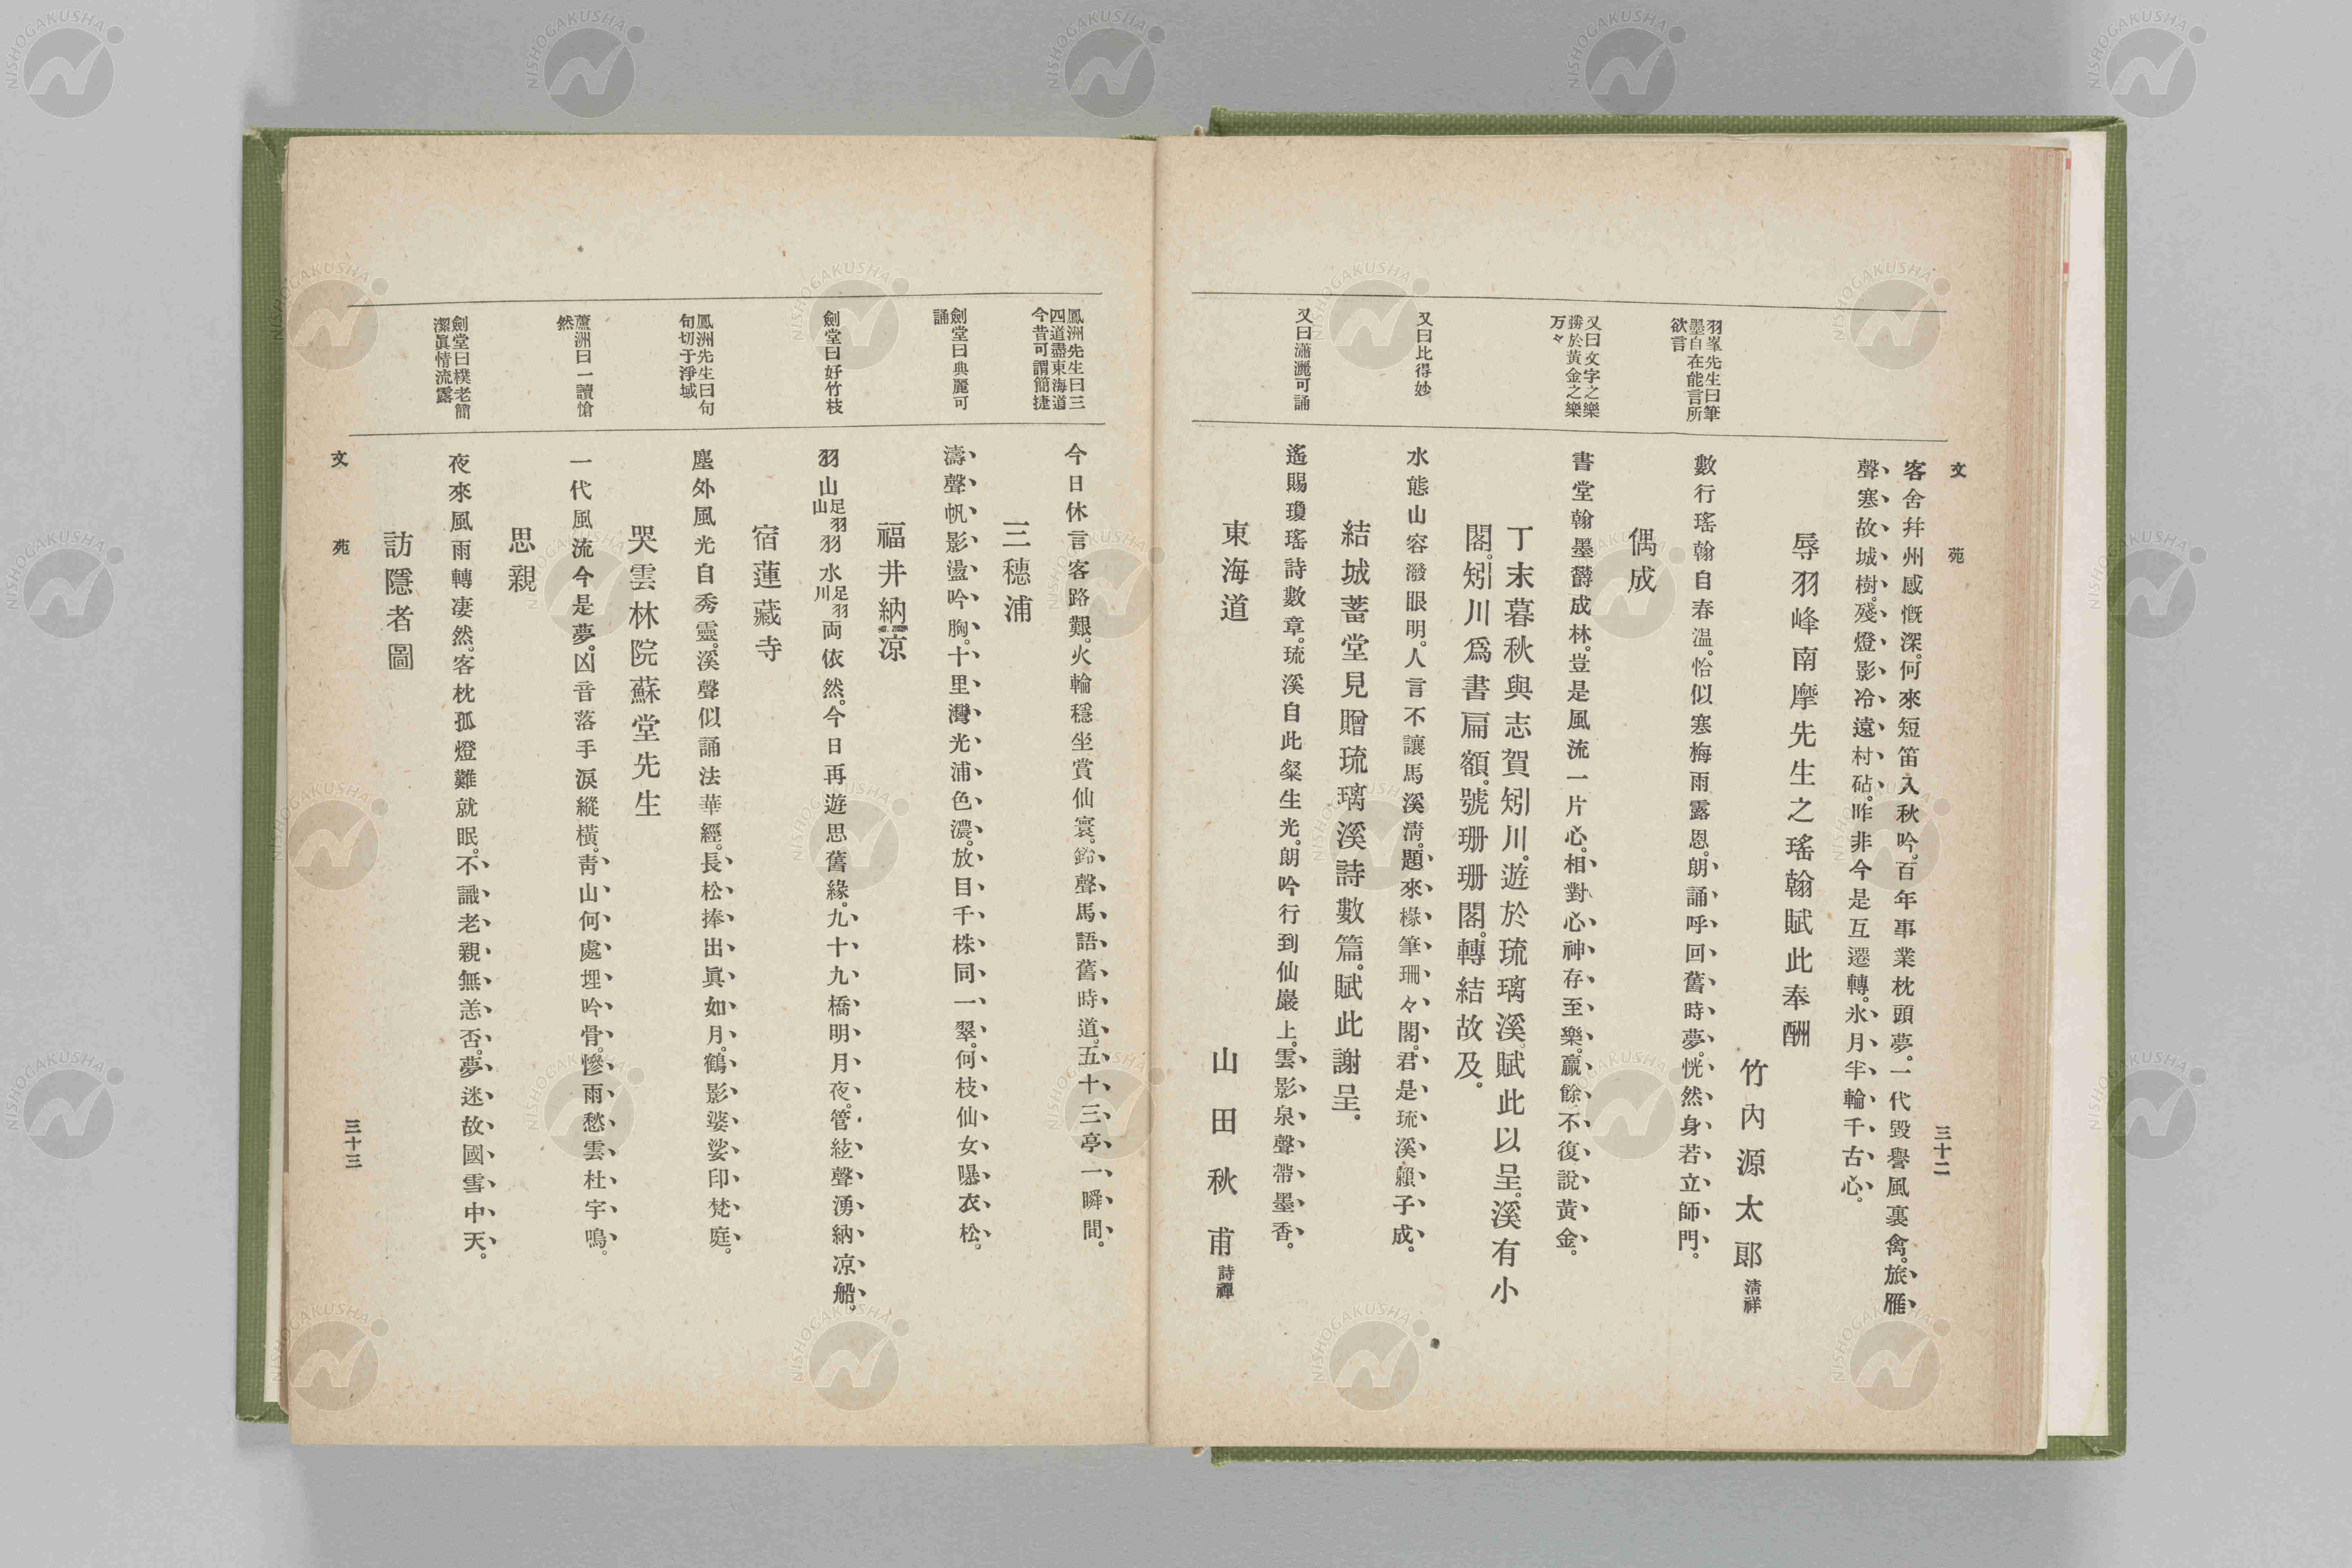 文苑
三十二
客舍幷州感慨深。何來短笛入秋吟。百年事業枕頭夢。一代毀譽風裏禽。旅雁
聲寒故城樹。殘燈影冷遠村砧。昨非今是互遷轉。氷月半輪千古心。
辱羽峰南摩先生之瑤翰賦此奉酬
竹內源太郞 淸祥
羽峯先生曰筆
墨自在能言所
欲言
數行瑤翰自春溫。恰似寒梅雨露恩。朗誦呼回舊時夢。恍然身若立師門。
偶成
又曰文字之樂
勝於黃金之樂
万々
書堂翰墨欝成林。豈是風流一片心。相對心神存至樂。贏餘不復說黃金。
丁末暮秋與志賀矧川。遊於琉璃溪。賦此以呈。溪有小
閣。矧川爲書扁額。號珊珊閣。轉結故及。
又曰比得妙
水態山容潑眼明。人言不讓馬溪淸。題來椽筆珊々閣。君是琉溪賴子成。
結城蓄堂見贈琉璃溪詩數篇。賦此謝呈。
又曰瀟灑可誦
遙賜瓊瑤詩數章。琉溪自此粲生光。朗吟行到仙巖上。雲影泉聲帶墨香。
東海道
山田秋甫 詩禪
鳳洲先生曰三
四道盡東海道
今昔可謂簡捷
今日休言客路艱。火輪穩坐賞仙寰。鈴聲馬語舊時道。五十三亭一瞬間。
三穗浦
劍堂曰典麗可
誦
濤聲帆影盪吟胸。十里灣光浦色濃。放目千株同一翠。何枝仙女曝衣松。
福井納凉
劍堂曰好竹枝
羽山足羽山羽水足羽川両依然。今日再遊思舊緣。九十九橋明月夜。管絃聲湧納凉船。
宿蓮藏寺
鳳洲先生曰句
句切于淨域
塵外風光自秀靈。溪聲似誦法華經。長松捧出眞如月。鶴影婆娑印梵庭。
哭雲林院蘇堂先生
蘆洲曰一讀愴
然
一代風流今是夢。凶音落手淚縱橫。靑山何處埋吟骨。慘雨愁雲杜宇鳴。
思親
劍堂曰樸老簡
潔眞情流露
夜來風雨轉凄然。客枕孤燈難就眠。不識老親無恙否。夢迷故國雪中天。
訪隱者圖
文苑
三十三
NISHOGAKUSHA